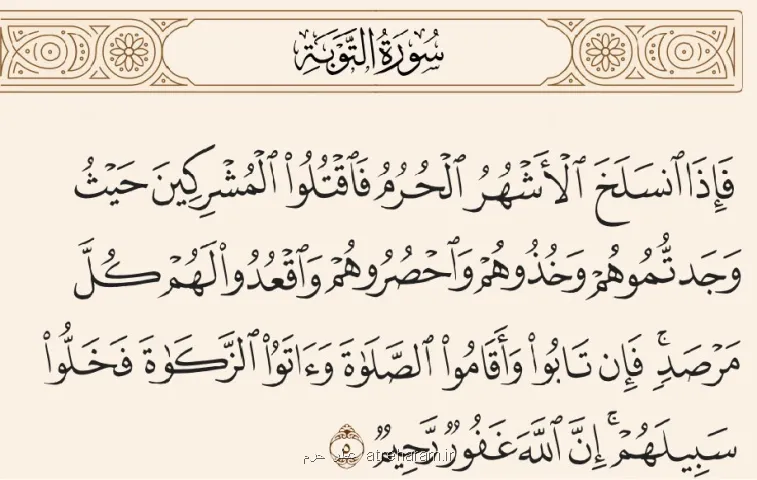 سُورَةُ التَّوۡبَةِ
فَإِذَا ٱنسَلَخَ ٱلۡأَشۡهُرُ ٱلۡحُرُمُ فَٱقۡتُلُواْ ٱلۡمُشۡرِكِينَ حَيۡثُ
وَجَدتُّمُوهُمۡ وَخُذُوهُمۡ وَٱحۡصُرُوهُمۡ وَٱقۡعُدُواْ لَهُمۡ كُلَّ
مَرۡصَدٖۚ فَإِن تَابُواْ وَأَقَامُواْ ٱلصَّلَوٰةَ وَءَاتَوُاْ ٱلزَّكَوٰةَ فَخَلُّواْ
سَبِيلَهُمۡۚ إِنَّ ٱللَّهَ غَفُورٞ رَّحِيمٞ ٥
حرم atreharam.ir